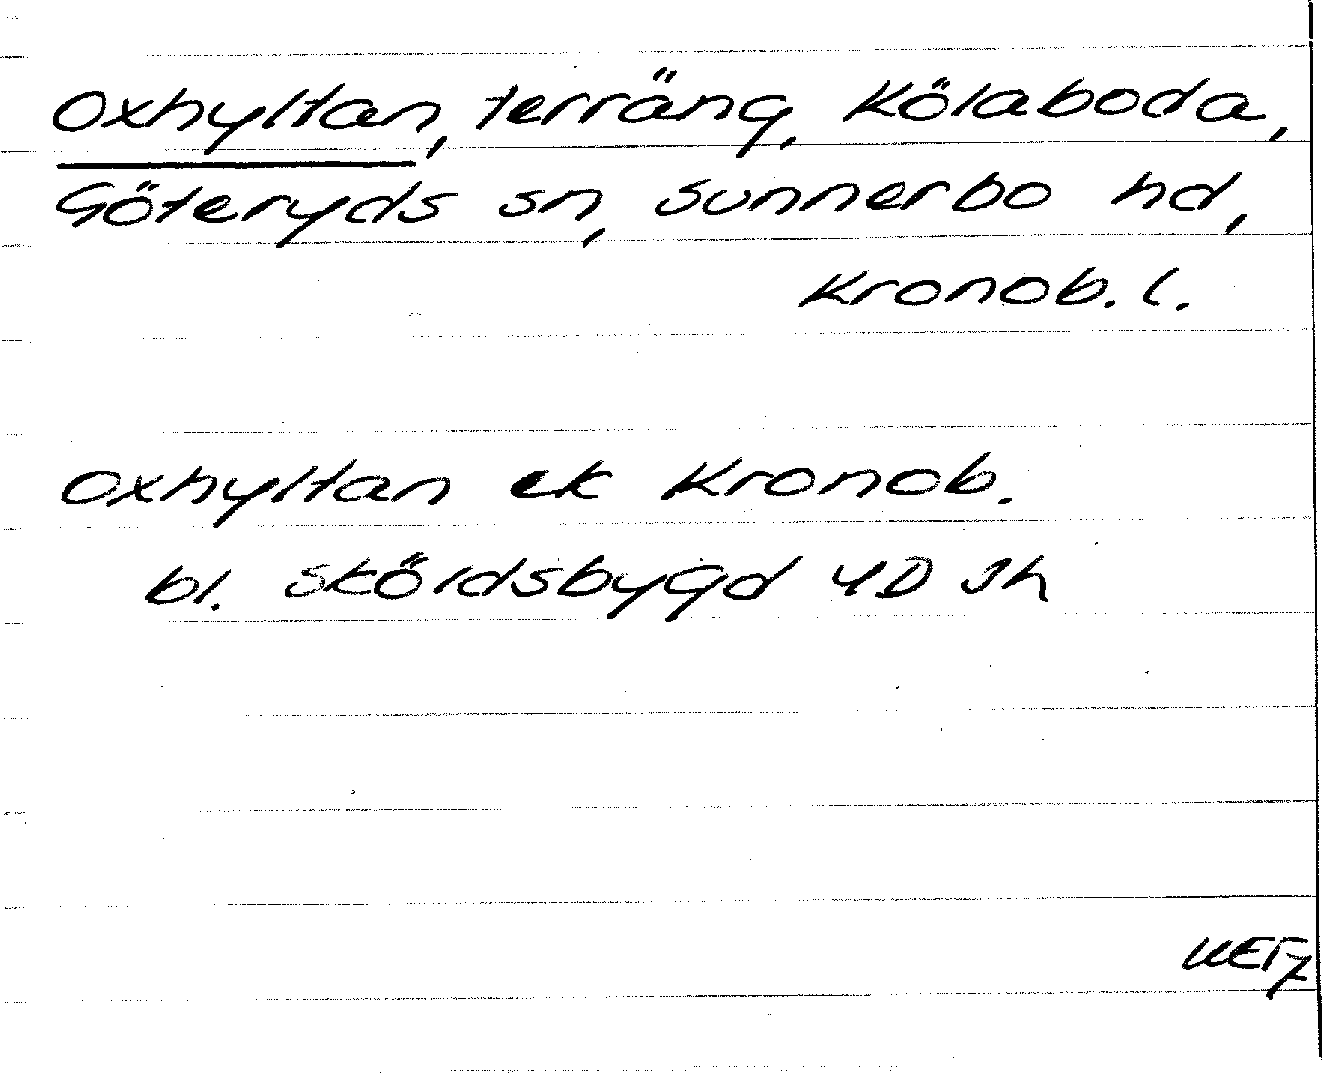 Oxhyltan, terräng, Kölaboda,
Göteryds sn, Sunnerbo hd,
Kronob. l.
Oxhyltan ek Kronob.
bl. Sköldsbygd 4D Sh